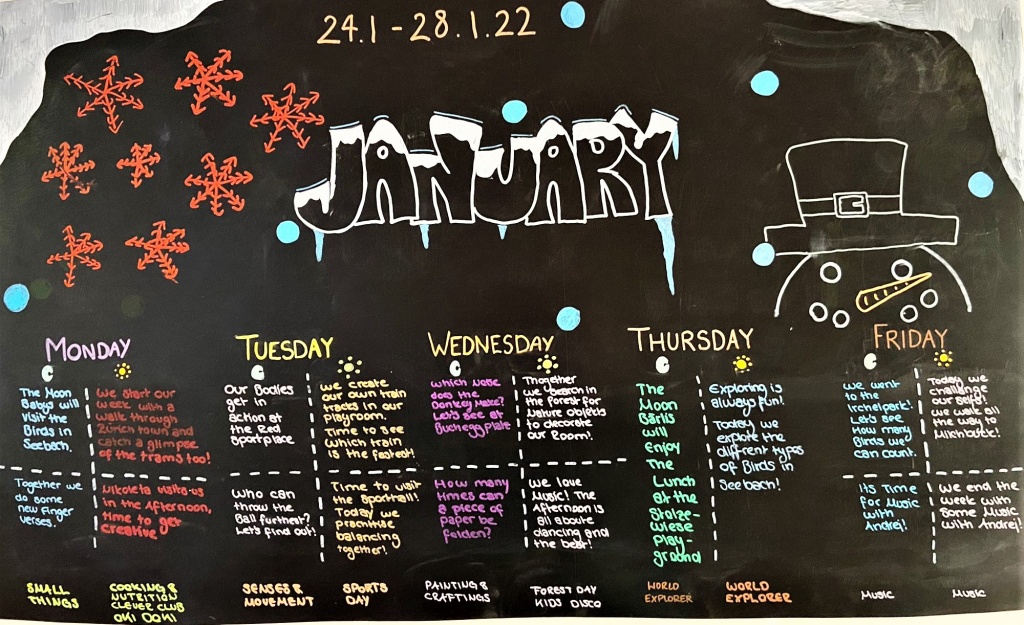 24.1 - 28.1.22
JANUARY
MONDAY
The Moon
Babys will
visit the
Birds in
Seebach.
Together we
do some
new Finger
verses.
SMALL
THINGS
We start our
week with a
walk through
Zürich town and
catch a glimpse
of the trams too!
Nikoleta visits us
in the Afternoon,
time to get
creative
COOKING &
NUTRITION
CLEVER CLUB
OKI DOKI
TUESDAY
Our Bodies
get in
action at
the Red
Sportplace
Who can
throw the
Ball further?
Let's find out!
SENSES &
MOVEMENT
We create
our own train
tracks in our
Playroom.
Time to see
which train
is the fastest!
Time to visit
the Sporthall!
Today we
practise
balancing
together!
SPORTS
DAY
WEDNESDAY
Which Noise
does the
Donkey Make?
Let's see at
Bucheggplatz
How many
times can
a piece of
paper be
folden?
PAINTING &
CRAFTINGS
Thogether
we search in
the Forest for
Nature objects
to decorate
our Room!
We love
Music! The
Afternoon is
all aboute
dancing and
the beat!
FOREST DAY
KIDS DISCO
THURSDAY
The
Moon
Bärlis
will
enjoy
The
Lunch
at the
Stolze-
wiese
Play-
ground
WORLD
EXPLORER
Exploring is
always fun!
Today we
explore the
different types
of Birds in
Seebach!
WORLD
EXPLORER
FRIDAY
We went
to the
Irchelpark!
Let's see
How many
Birds we
can count.
It's Time
for Music
with
Andrej!
MUSIC
Today we
challenge
our selfs!
We walk all
the way to
Milchbuck!
We end the
week with
some Music
with Andrej!
MUSIC